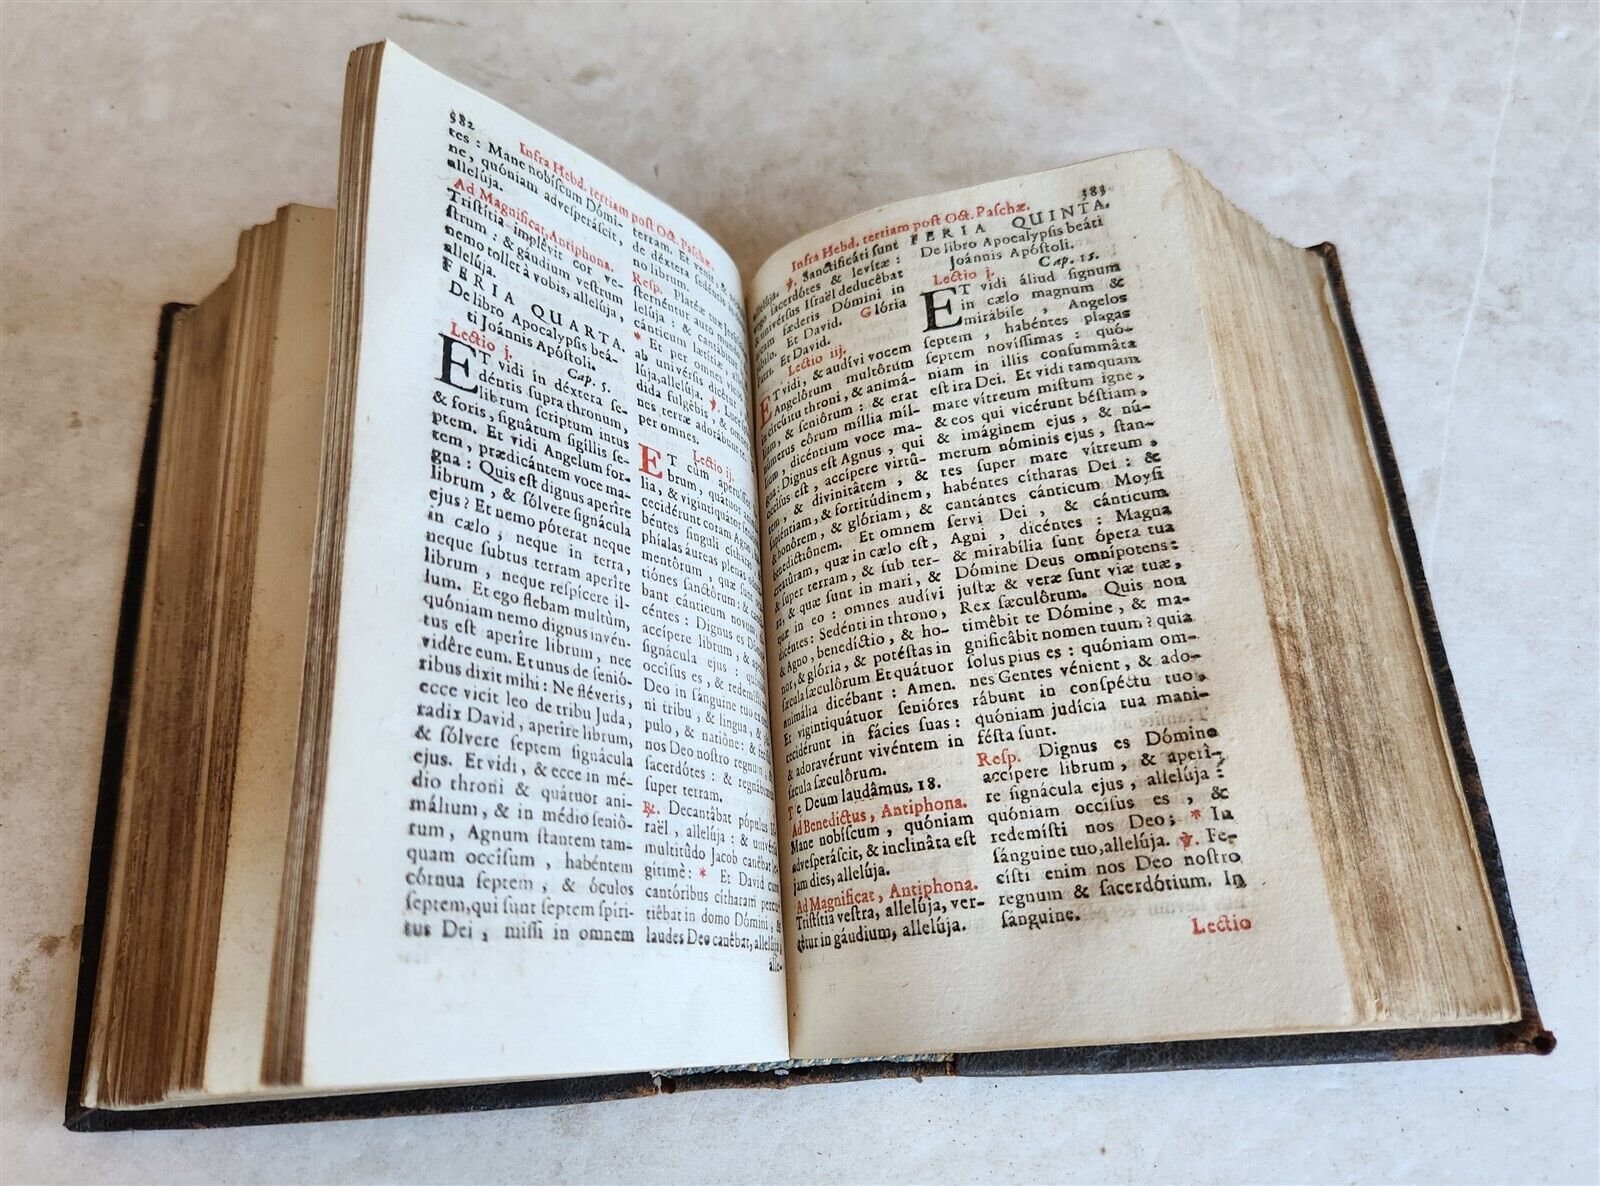 382
Infra Hebd. tertiam post Oct. Paschæ.
tes : Mane nobiſcum Dómi-
ne, quóniam adveſperáſcit,
allelúja.
Ad Magnificat, Antiphona.
Triſtítia implêvit cor ve-
ſtrum : & gáudium veſtrum
nemo tollet à vobis, allelúja,
allelúja.
FERIA QUARTA.
De libro Apocalypſis beá-
ti Joánnis Apóſtoli.
Lectio j. Cap. 5.
ET vidi in déxtera ſe-
déntis supra thronum,
librum ſcriptum intus
& foris, ſignâtum ſigíllis ſe-
ptem. Et vidi Angelum for-
tem, prædicántem voce ma-
gna : Quis eſt dignus aperîre
librum, & ſólvere ſignácula
ejus ? Et nemo póterat neque
in cælo, neque in terra,
neque ſubtus terram aperîre
librum, neque reſpícere il-
lum. Et ego flebam multùm,
quóniam nemo dignus invén-
tus eſt aperîre librum, nec
vidêre eum. Et unus de ſenió-
ribus dixit mihi : Ne fléveris,
ecce vicit leo de tribu Juda,
radix David, aperîre librum,
& ſólvere ſeptem ſignácula
ejus. Et vidi, & ecce in mé-
dio throni & quátuor ani-
málium, & in médio ſeniô-
rum, Agnum ſtantem tam-
quam occîſum, habéntem
córnua ſeptem, & óculos
ſeptem, qui ſunt ſeptem ſpíri-
tus Dei, miſſi in omnem
terram. Et venit
de déxtera ſe
no librum.
Resp. Platéæ tuæ
ſternéntur auro
lúja : & cantábitur
cánticum lætítiæ
* Et per omnes
ab univérſis dicêtur
lúja, allelúja. ℣. Luce
dida fulgébis, & om
nes terræ adorábunt
per omnes.
Lectio ij.
ET cùm aperuíſſet
brum, quátuor
lia, & vigintiquátuor
cecidérunt coram Agno
béntes ſínguli cítharas
phíalas áureas plenas
mentôrum, quæ
tiónes ſanctôrum : &
bant cánticum novum,
céntes : Dignus es Dó
accípere librum, & ape
ſignácula ejus : quó
occîſus es, & redemíſti
Deo in ſánguine tuo
ni tribu, & lingua, &
pulo, & natiône : &
nos Deo noſtro regnum, &
ſacerdótes : & regnábimus
ſuper terram.
℟. Decantábat pópulus
raël, allelúja : & univérſa
multitúdo Jacob canêbat le-
gítimè : * Et David cum
cantóribus cítharam percu
tiêbat in domo Dómini, &
laudes Deo canêbat, allelúja,
alle-
383
Infra Hebd. tertiam post Oct. Paschæ.
allelúja. ℣. Sanctificáti ſunt
ergo ſacerdótes & levîtæ :
& univérſus Israël deducêbat
arcam fœderis Dómini in
Et David. Glória
Patri. Et David.
Lectio iij.
ET vidi, & audívi vocem
Angelôrum multôrum
in circúitu throni, & animá-
lium, & ſeniôrum : & erat
númerus eôrum míllia míl-
lium, dicéntium voce ma-
gna : Dignus eſt Agnus, qui
occîſus eſt, accípere virtû-
tem, & divinitâtem, &
ſapiéntiam, & fortitúdinem,
& honôrem, & glóriam, &
benedictiônem. Et omnem
creatûram, quæ in cælo eſt,
& ſuper terram, & ſub ter-
ra, & quæ ſunt in mari, &
quæ in eo : omnes audívi
dicéntes : Sedénti in throno,
& Agno, benedíctio, & ho-
nor, & glória, & potéſtas in
ſæcula ſæculôrum Et quátuor
animália dicébant : Amen.
Et vigintiquátuor ſenióres
cecidérunt in fácies ſuas :
& adoravérunt vivéntem in
ſæcula ſæculôrum.
Te Deum laudâmus. 18.
Ad Benedictus, Antiphona.
Mane nobíſcum, quóniam
adveſperáſcit, & inclinâta eſt
jam dies, allelúja.
Ad Magnificat, Antiphona.
Triſtítia veſtra, allelúja, ver-
têtur in gáudium, allelúja.
FERIA QUINTA.
De libro Apocalypſis beáti
Joánnis Apóſtoli.
Lectio j. Cap. 15.
ET vidi áliud ſignum
in cælo magnum &
mirábile, Angelos
ſeptem, habéntes plagas
ſeptem novíſſimas : quó-
niam in illis conſummâta
eſt ira Dei. Et vidi tamquam
mare vítreum miſtum igne,
& eos qui vicérunt béſtiam,
& imáginem ejus, & nú-
merum nóminis ejus, ſtan-
tes ſuper mare vítreum,
habéntes cítharas Dei : &
cantántes cánticum Moyſi
ſervi Dei, & cánticum
Agni, dicéntes : Magna
& mirabília ſunt ópera tua
Dómine Deus omnípotens :
juſtæ & veræ ſunt viæ tuæ,
Rex ſæculôrum. Quis non
timêbit te Dómine, & ma-
gnificâbit nomen tuum ? quia
ſolus pius es : quóniam om-
nes Gentes vénient, & ado-
rábunt in conſpéctu tuo,
quóniam judícia tua mani-
féſta ſunt.
Reſp. Dignus es Dómine
accípere librum, & aperî-
re ſignácula ejus, allelúja :
quóniam occîſus es, &
redemíſti nos Deo ; * In
ſánguine tuo, allelúja. ℣. Fe-
cíſti enim nos Deo noſtro
regnum & ſacerdótium. In
ſánguine.
Lectio